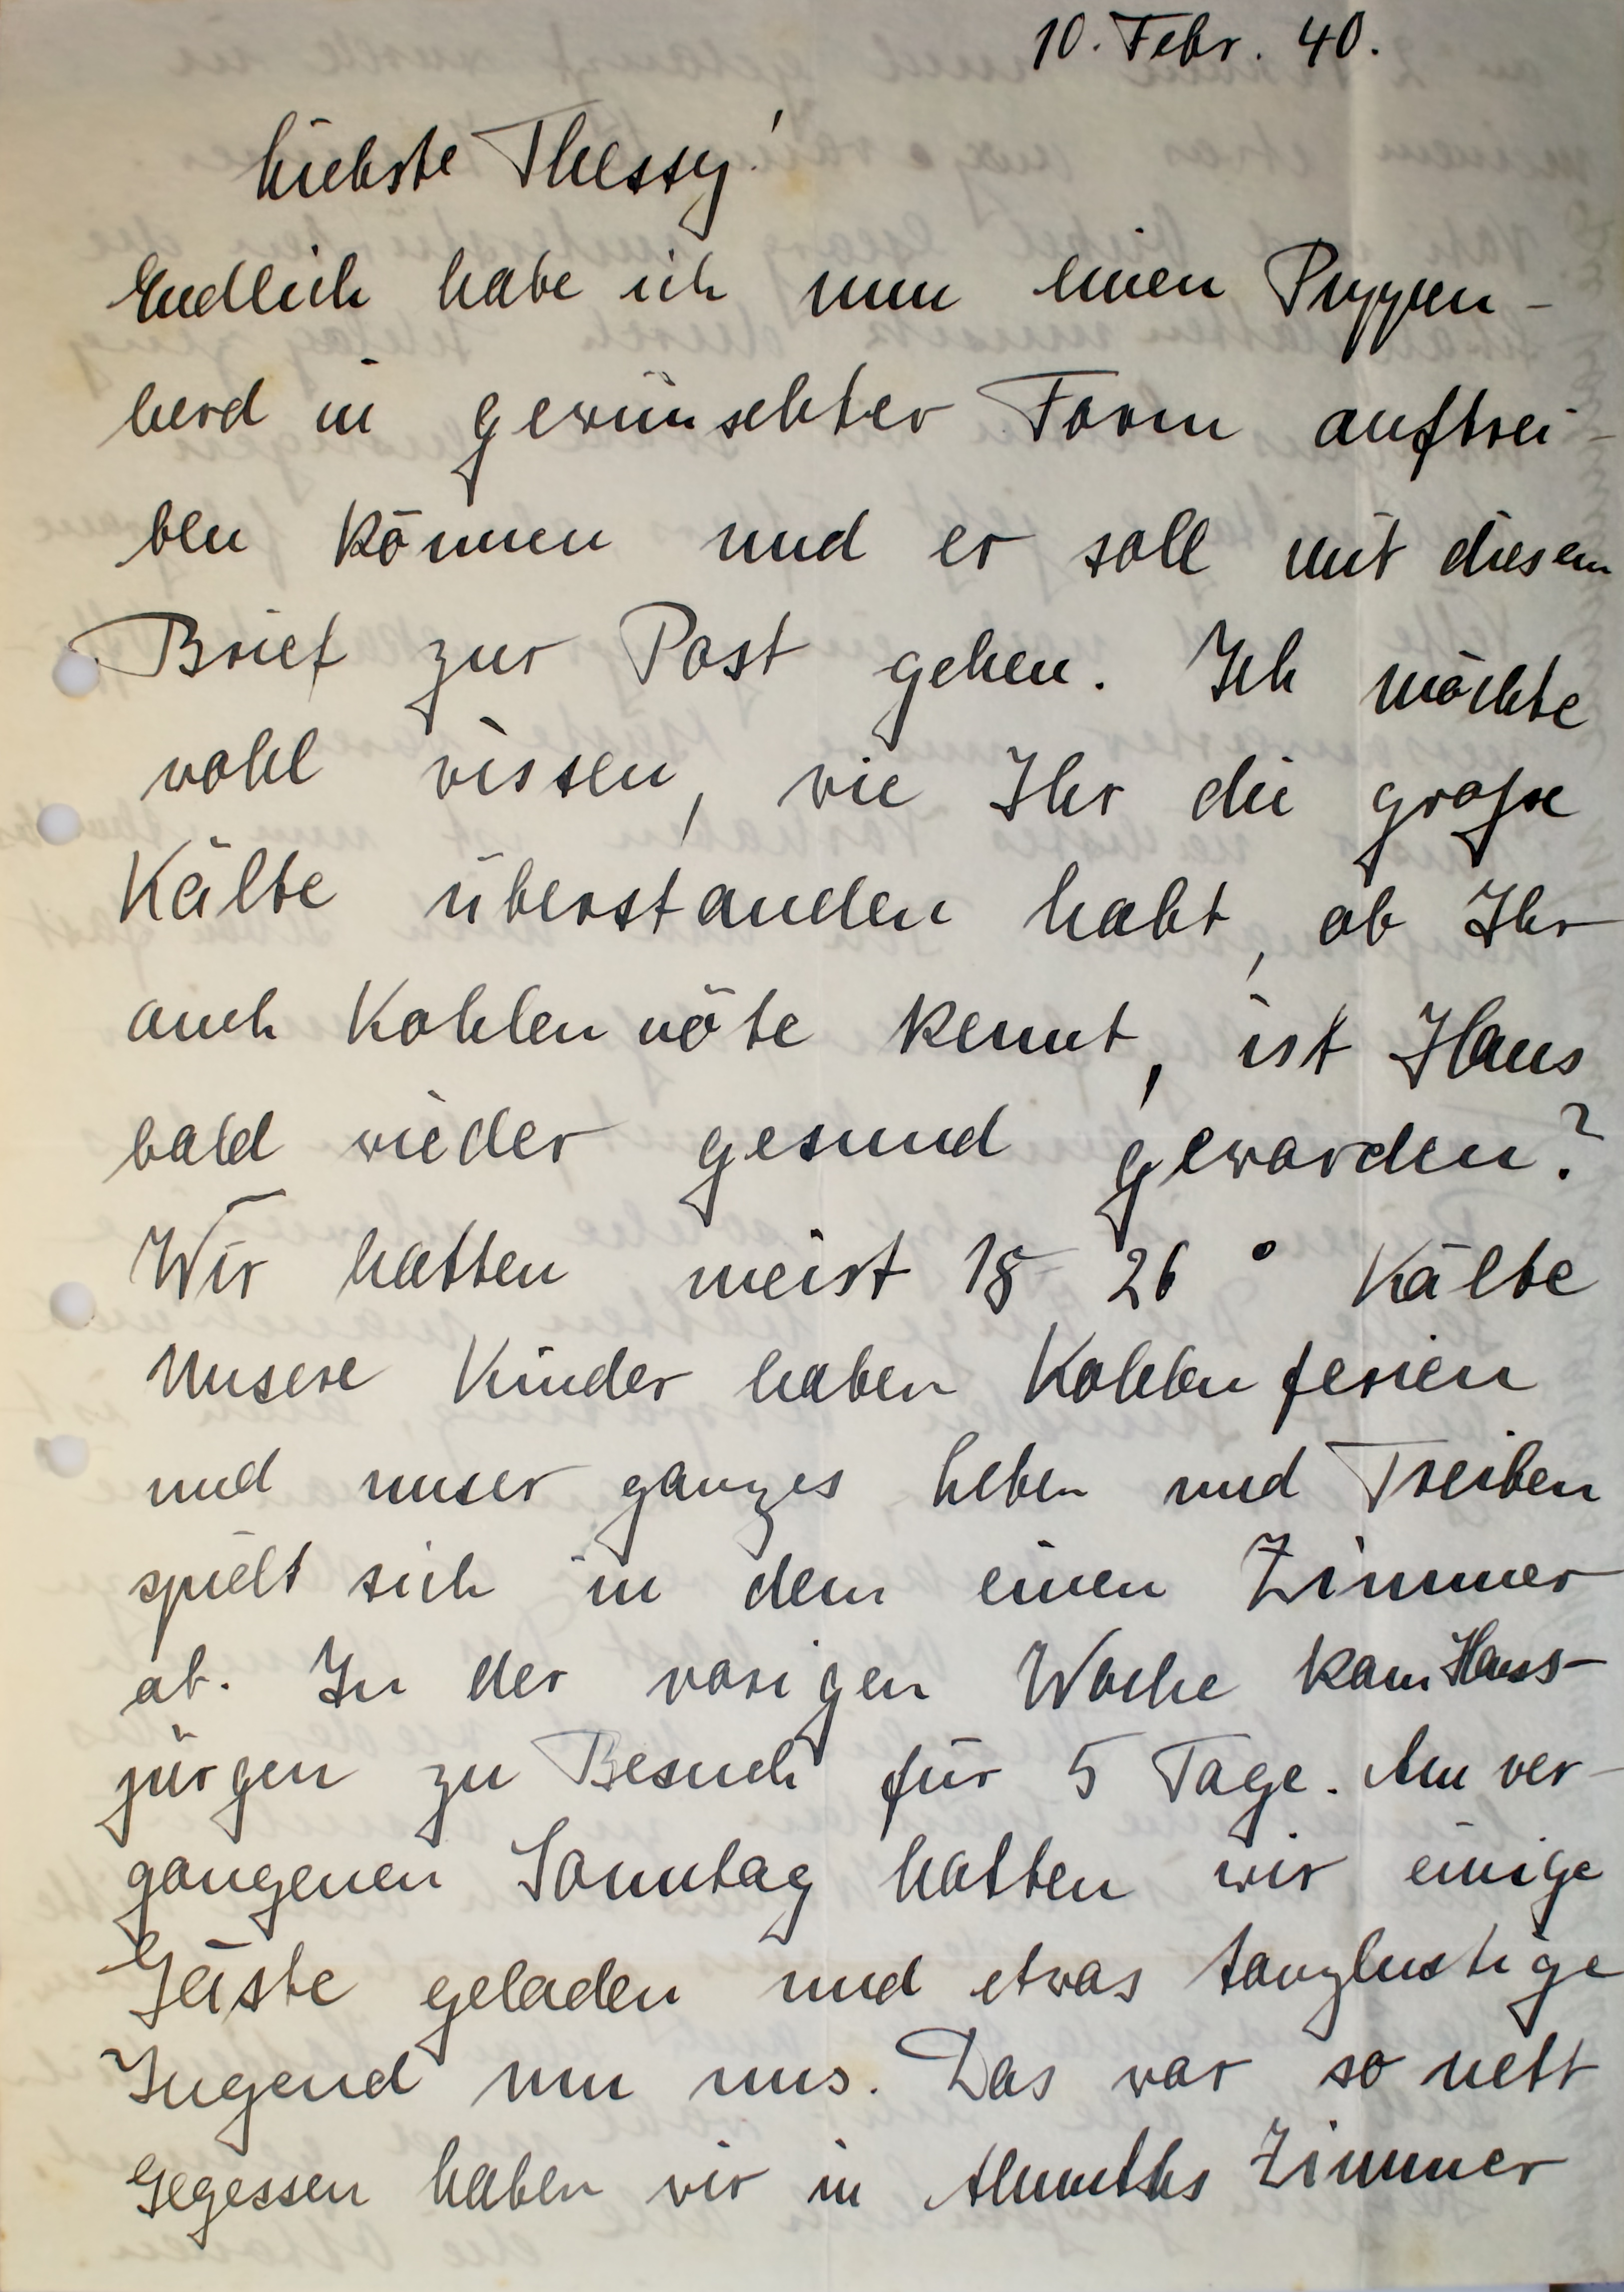 10. Febr. 40.
Liebste Thessy!
Endlich habe ich nun einen Puppen-
herd in gewünschter Form auftrei-
ben können und er soll mit diesem
Brief zur Post gehen. Ich möchte
wohl wissen, wie Ihr die große
Kälte überstanden habt, ob Ihr
auch Kohlennöte kennt, ist Haus
bald wieder gesund geworden?
Wir hatten meist 18 - 26 ° Kälte
Unsere Kinder haben Kohlenferien
und unser ganzes Leben und Treiben
spielt sich in dem einen Zimmer
ab. In der vorigen Woche kam Hans-
jürgen zu Besuch für 5 Tage. Am ver-
gangenen Sonntag hatten wir einige
Gäste geladen und etwas tanzlustige
Jugend um uns. Das war so nett
Gegessen haben wir in Almuths Zimmer